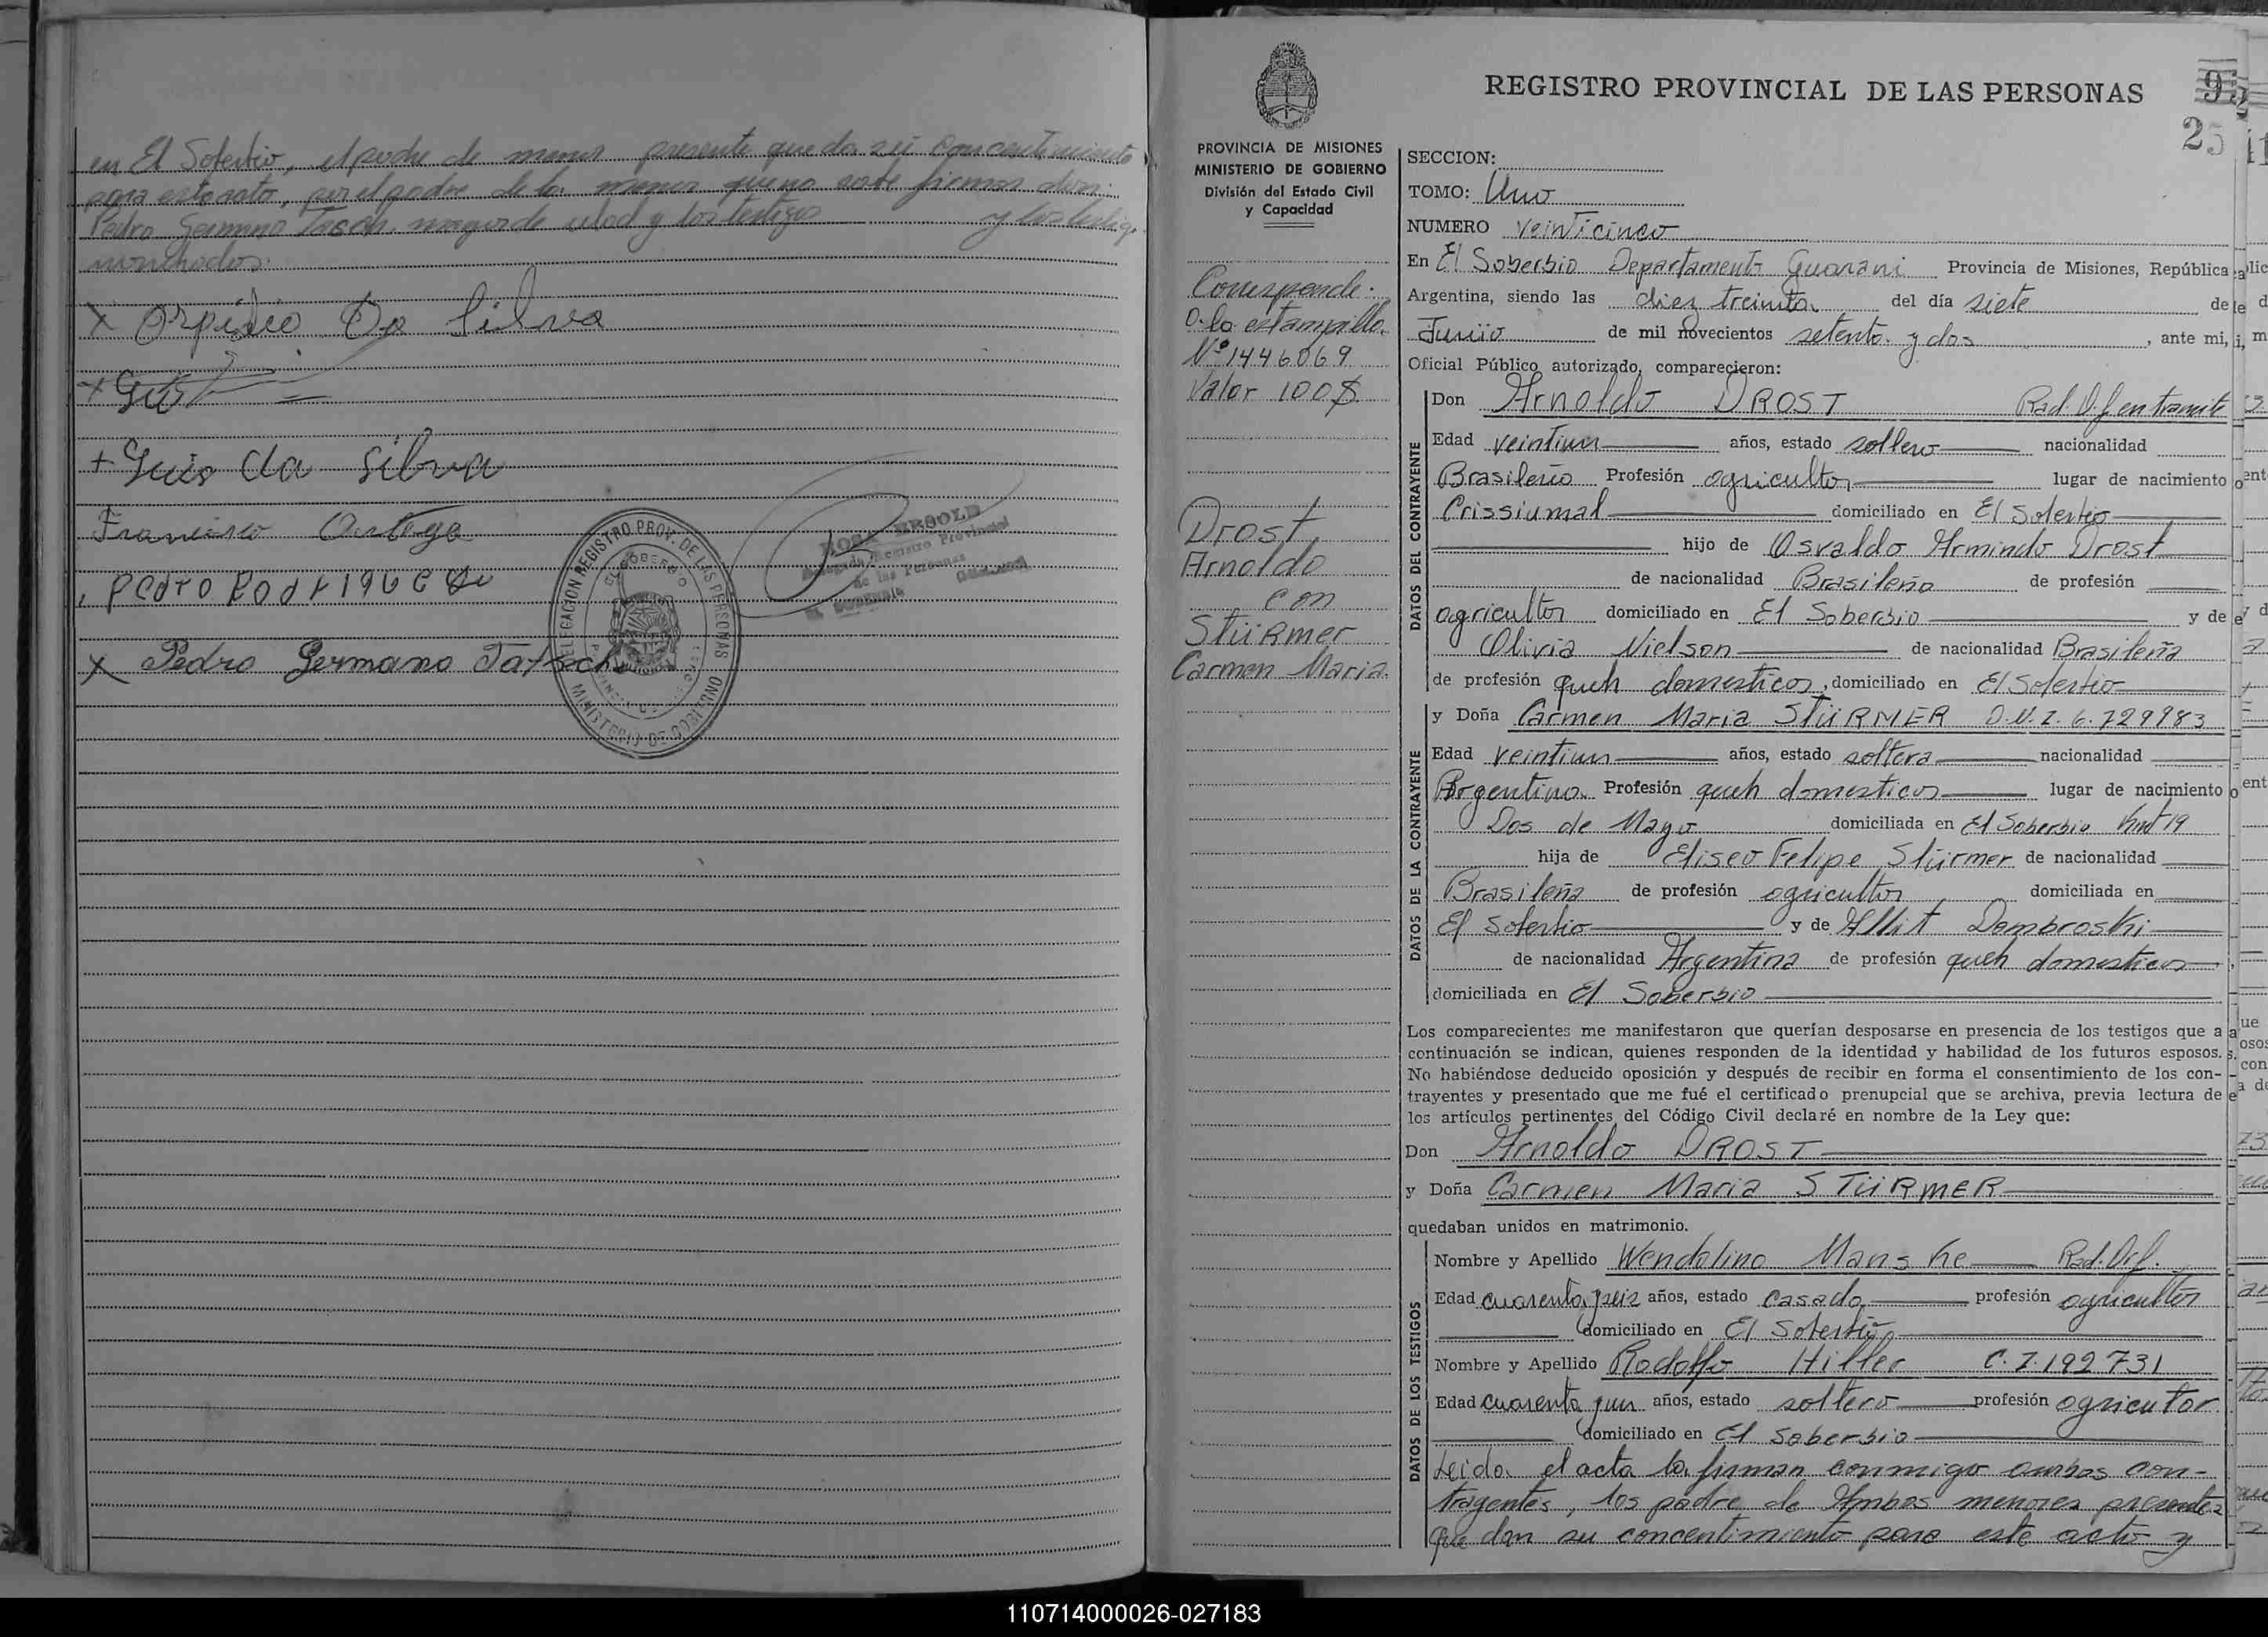 en El Soberbio, el padre de menor presente que da su concentimiento
para este acto, por el padre de la menor que no sabe firmar don:
Pedro Germano Tasch. mayor de edad y los testigos y los testigo
nombrados.
X Orpidio Da Silva
+ Luis da Silva
Francisco Ortega
PEdro Rodrigue
X Pedro Germano Tatsch
DELEGACION REGISTRO PROV. DE LAS PERSONAS
EL SOBERBIO
MINISTERIO DE GOBIERNO
Registro Provincial
de las Personas
EL SOBERBIO
REGISTRO PROVINCIAL DE LAS PERSONAS
25
PROVINCIA DE MISIONES
MINISTERIO DE GOBIERNO
División del Estado Civil
y Capacidad
Corresponde.
a la estampilla.
Nº 1446069
Valor 100$
Drost
Arnoldo
con
Stürmer
Carmen Maria.
SECCION:
TOMO: Uno
NUMERO veinticinco
En El Soberbio Departamento Guarani Provincia de Misiones, República
Argentina, siendo las diez treinta del día siete de
Junio de mil novecientos setenta y dos, ante mi,
Oficial Público autorizado, comparecieron:
DATOS DEL CONTRAYENTE
Don Arnoldo DROST Rad. D.f en tramite
Edad veintiun años, estado soltero nacionalidad
Brasileño Profesión agricultor lugar de nacimiento
Crissiumal domiciliado en El Soberbio
hijo de Osvaldo Armindo Drost
de nacionalidad Brasileña de profesión
agricultor domiciliado en El Soberbio y de
Olivia Nielson de nacionalidad Brasileña
de profesión queh domesticos, domiciliado en El Soberbio
DATOS DE LA CONTRAYENTE
y Doña Carmen Maria STÜRMER D.N.I. 6.729983
Edad veintiun años, estado soltera nacionalidad
Argentina. Profesión queh domesticos lugar de nacimiento
Dos de Mayo domiciliada en El Soberbio Kmt 19
hija de Eliseo Felipe Stürmer de nacionalidad
Brasileña de profesión agricultor domiciliada en
El Soberbio y de Allit Dombroski
de nacionalidad Argentina de profesión queh domesticos
domiciliada en El Soberbio
Los comparecientes me manifestaron que querían desposarse en presencia de los testigos que a
continuación se indican, quienes responden de la identidad y habilidad de los futuros esposos.
No habiéndose deducido oposición y después de recibir en forma el consentimiento de los con-
trayentes y presentado que me fué el certificado prenupcial que se archiva, previa lectura de
los artículos pertinentes del Código Civil declaré en nombre de la Ley que:
Don Arnoldo DROST
y Doña Carmen Maria STÜRMER
quedaban unidos en matrimonio.
DATOS DE LOS TESTIGOS
Nombre y Apellido Wendolino Manske Rad. Def.
Edad cuarenta y seis años, estado casado profesión agricultor
domiciliado en El Soberbio
Nombre y Apellido Rodolfo Hiller C.I. 192731
Edad cuarenta y un años, estado soltero profesión agricutor
domiciliado en El Soberbio
Leida el acta la firman conmigo ambos con-
trayentes, los padre de Ambos menores presentes
que dan su concentimiento para este acto y
110714000026-027183